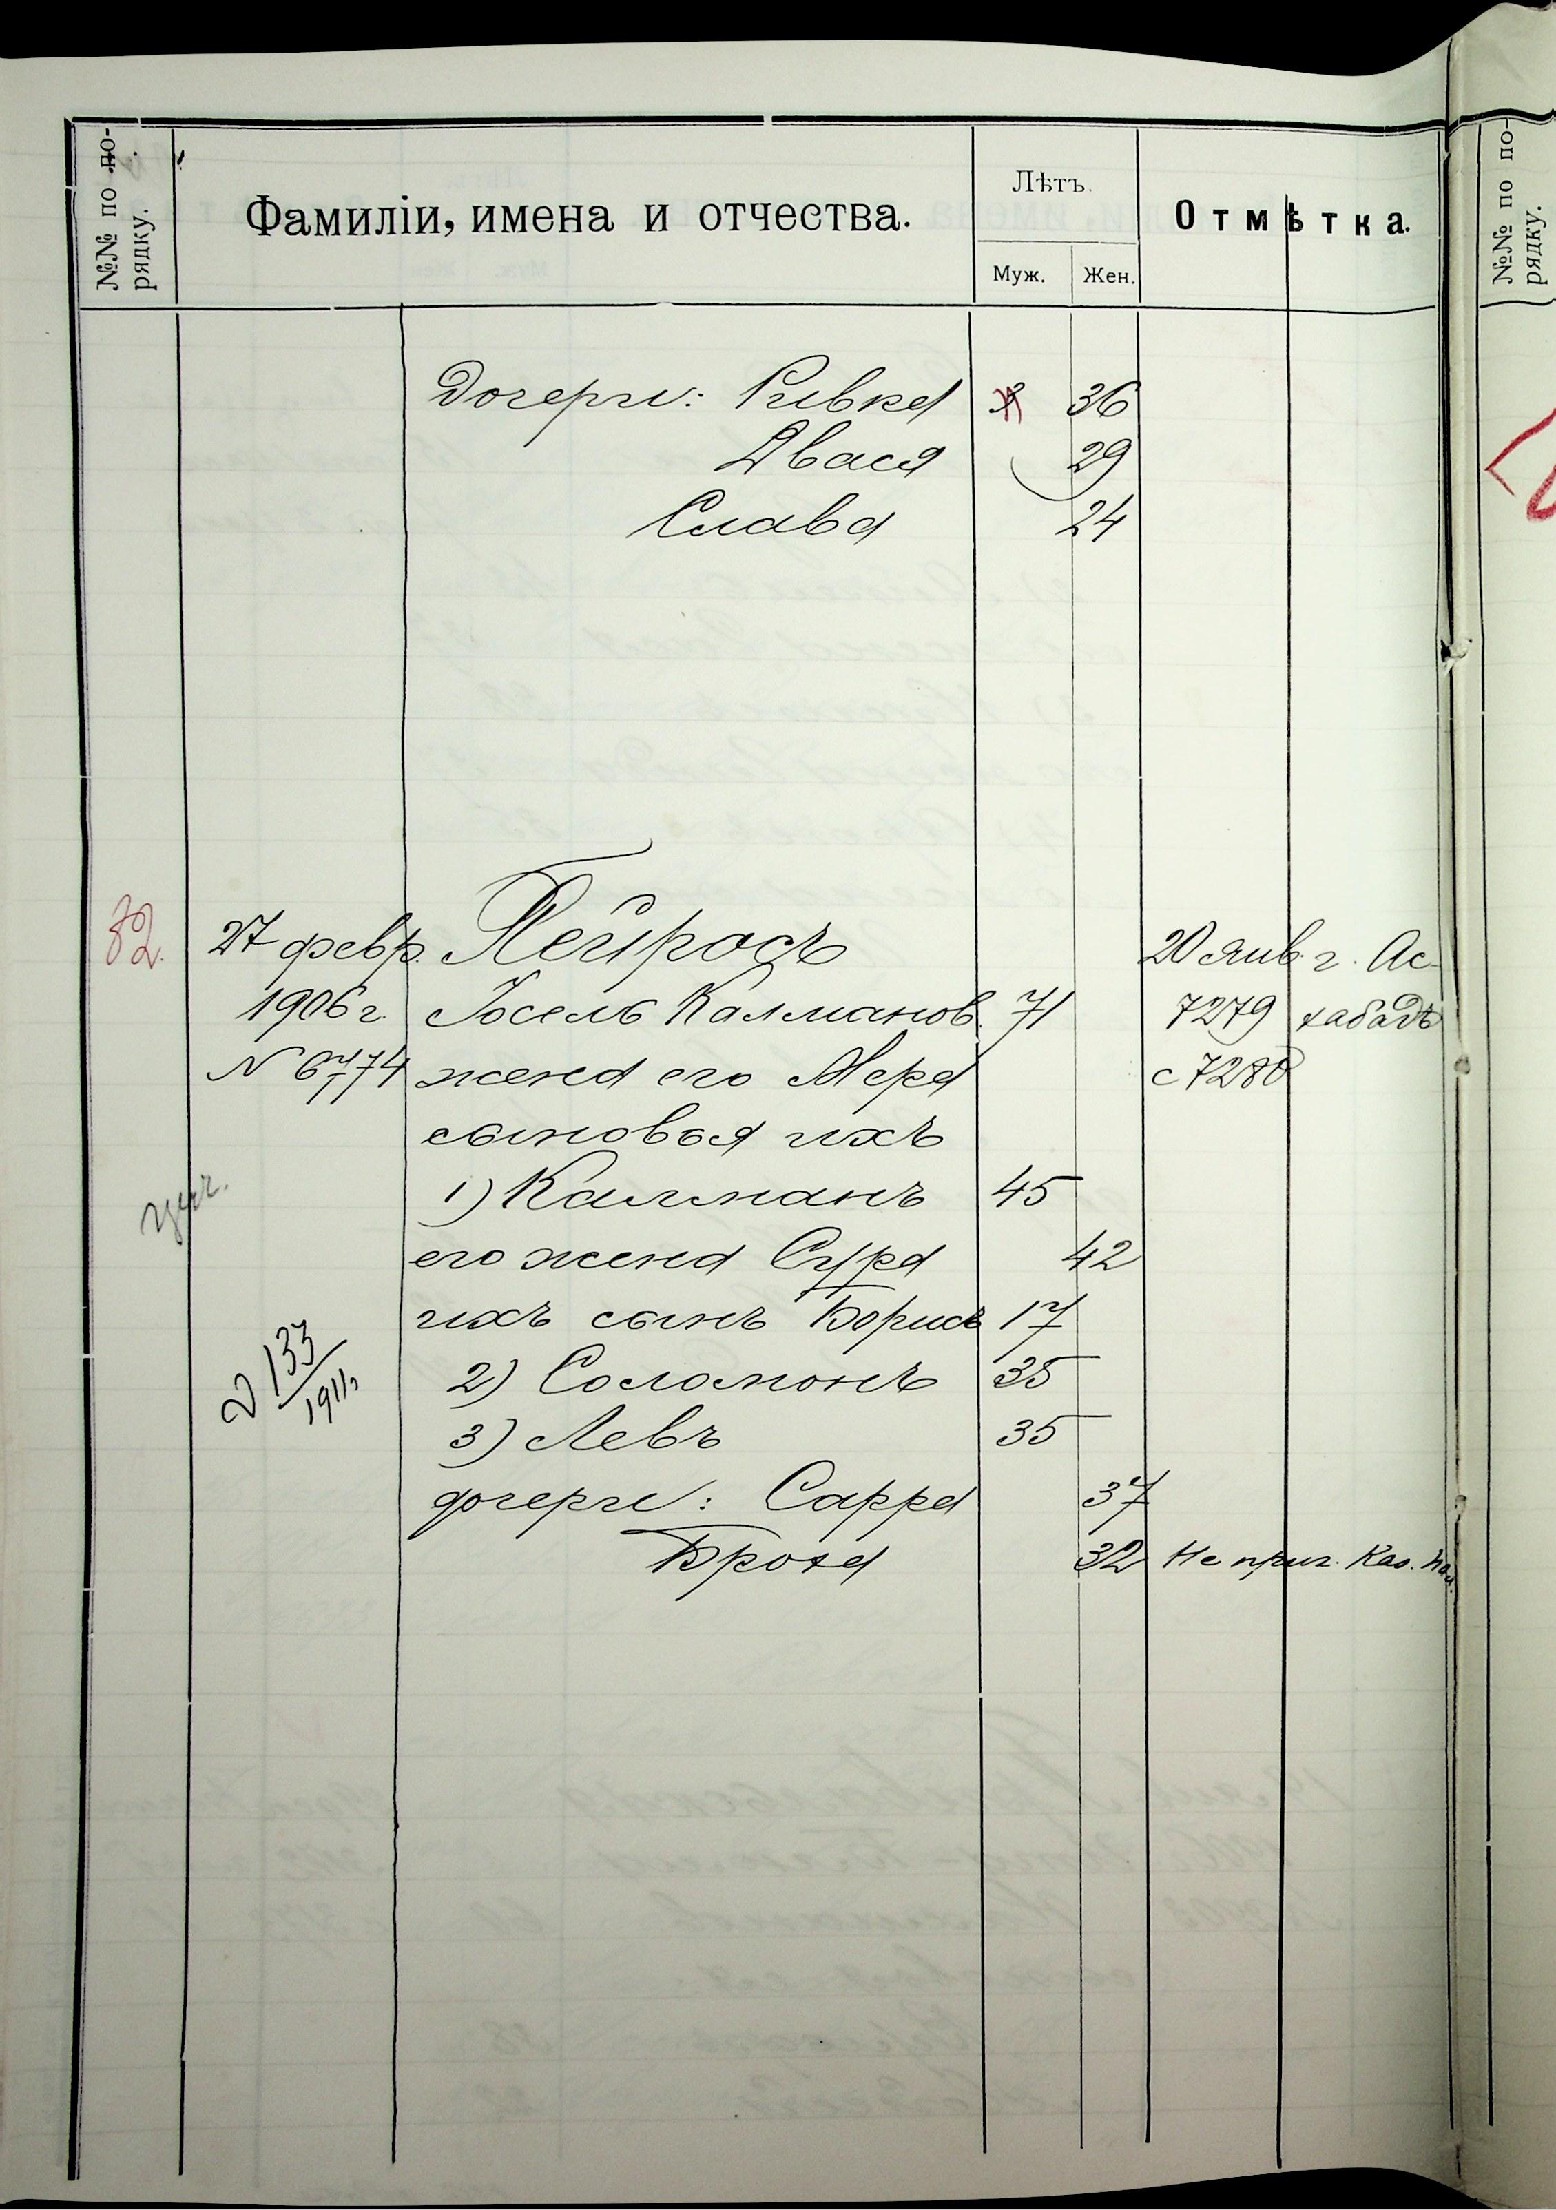 №№ по по-
рядку.
Фамиліи, имена и отчества.
Лѣтъ.
Муж. Жен.
Отмѣтка.
№№ по по-
рядку.
Дочери: Ривка 36
Двася 29
Слава 24
82. 27 февр. Пейросъ 20 янв. г. Ас-
1906 г. Іосель Калманов. 71 7279 хабадъ
N 6774 жена его Мера с 7280
сыновья ихъ
1) Калманъ 45
его жена Сура 42
ихъ сынъ Борисъ 17
133 2) Соломонъ 35
1911 3) Левъ 35
дочери: Сарра 37
Броха 32 Не приг. Каз. Пал.